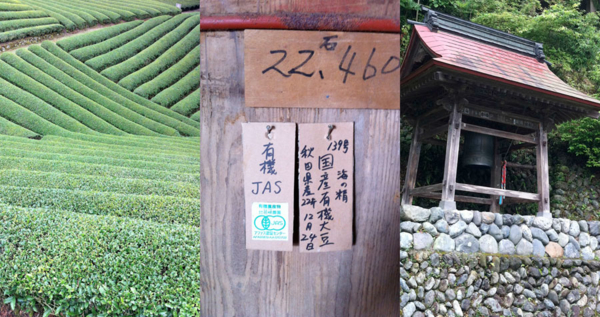 石
22.460
有機
JAS
139号
海の精
国産有機大豆
秋田県産22年12月24日